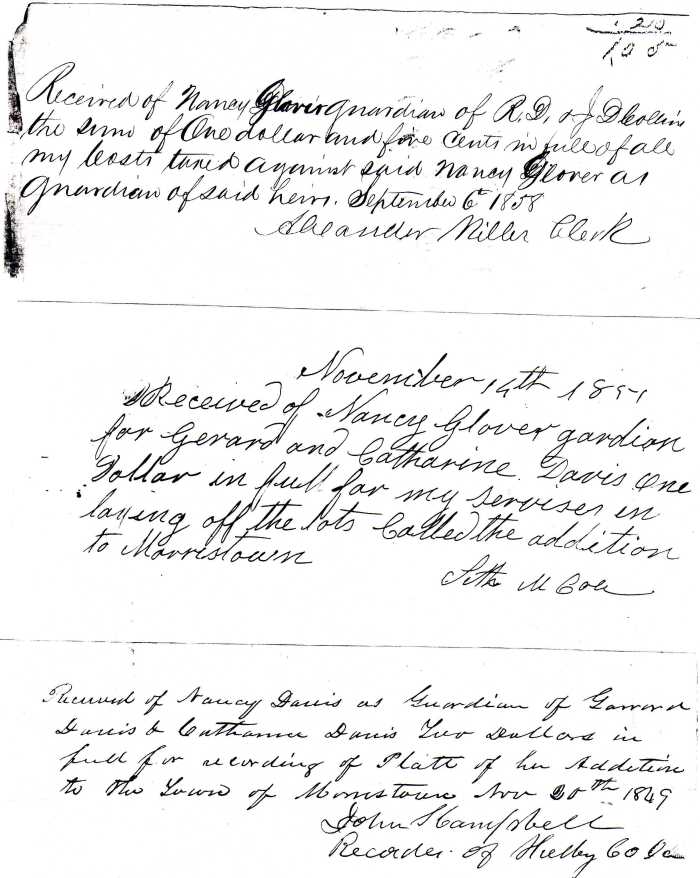 210
105
Received of Nancy Glover guardian of R. D. & J D Collins
the sum of One dollar and five Cents in full of all
my Costs taxed against said Nancy Glover as
Guardian of said heirs. September 6th 1858
Alexander Miller Clerk
November 14th 1851
Received of Nancy Glover gardian
for Gerard and Catharine Davis One
Dollar in full for my serviser in
laying off the lots Called the addition
to Morristown
Seth M Cole
Received of Nancy Davis as Guardian of Garrard
Davis & Catharine Davis Two Dollars in
full for recording of Platt of her Addition
to the Town of Morristown Nov 30th 1849
John S Campbell
Recorder of Shelby Co